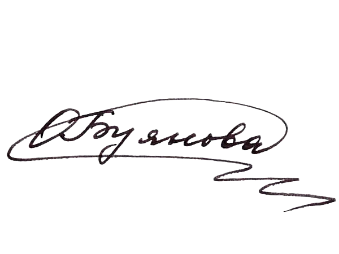 ОБуянова